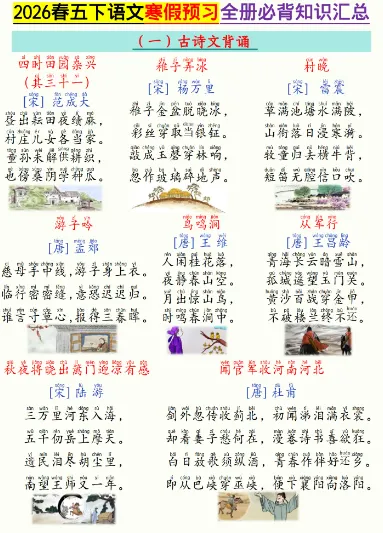 2026春五下语文寒假预习全册必背知识汇总
（一）古诗文背诵
四时田园杂兴
（其三十一）
[宋] 范成大
昼出耘田夜绩麻，
村庄儿女各当家。
童孙未解供耕织，
也傍桑阴学种瓜。
稚子弄冰
[宋] 杨万里
稚子金盆脱晓冰，
彩丝穿取当银钲。
敲成玉磬穿林响，
忽作玻璃碎地声。
村晚
[宋] 雷震
草满池塘水满陂，
山衔落日浸寒漪。
牧童归去横牛背，
短笛无腔信口吹。
游子吟
[唐] 孟郊
慈母手中线，游子身上衣。
临行密密缝，意恐迟迟归。
谁言寸草心，报得三春晖。
鸟鸣涧
[唐] 王维
人闲桂花落，
夜静春山空。
月出惊山鸟，
时鸣春涧中。
从军行
[唐] 王昌龄
青海长云暗雪山，
孤城遥望玉门关。
黄沙百战穿金甲，
不破楼兰终不还。
秋夜将晓出篱门迎凉有感
[宋] 陆游
三万里河东入海，
五千仞岳上摩天。
遗民泪尽胡尘里，
南望王师又一年。
闻官军收河南河北
[唐] 杜甫
剑外忽传收蓟北，初闻涕泪满衣裳。
却看妻子愁何在，漫卷诗书喜欲狂。
白日放歌须纵酒，青春作伴好还乡。
即从巴峡穿巫峡，便下襄阳向洛阳。